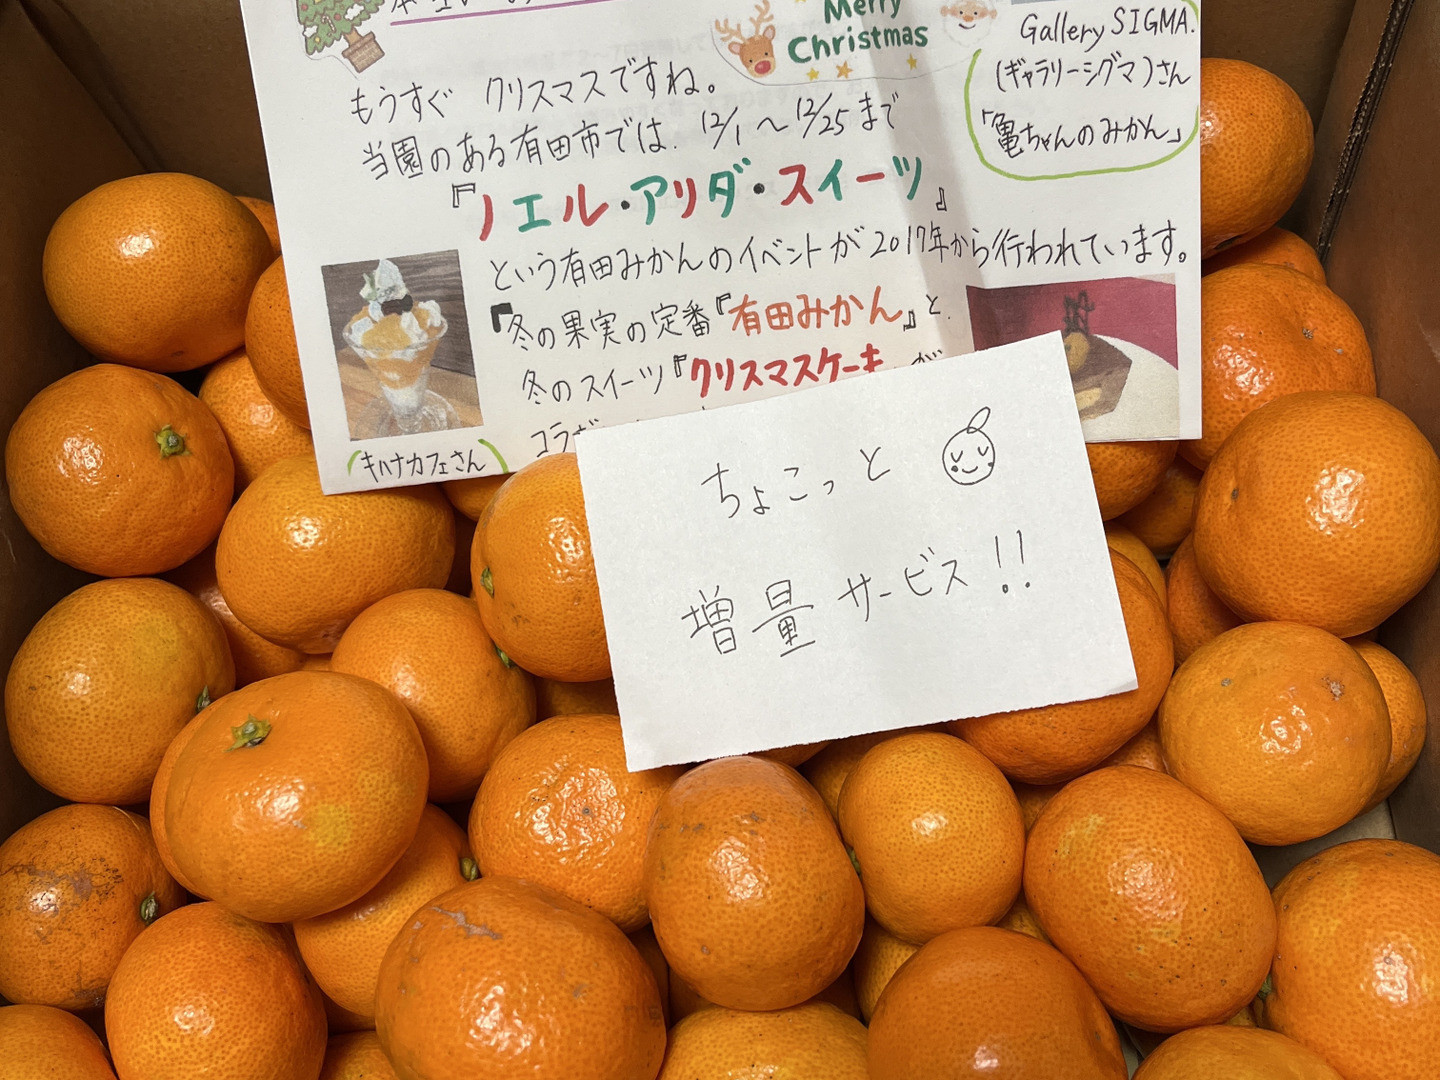 Merry
Christmas
Gallery SIGMA.
(ギャラリーシグマ)さん
「亀ちゃんのみかん」
もうすぐ クリスマスですね。
当園のある有田市では、12/1～12/25まで
『ノエル・アリダ・スイーツ』
という有田みかんのイベントが2017年から行われています。
『冬の果実の定番『有田みかん』と、
冬のスイーツ『クリスマスケーキ
が
コラボ
キハチカフェさん
ちょこっと
増量サービス!!